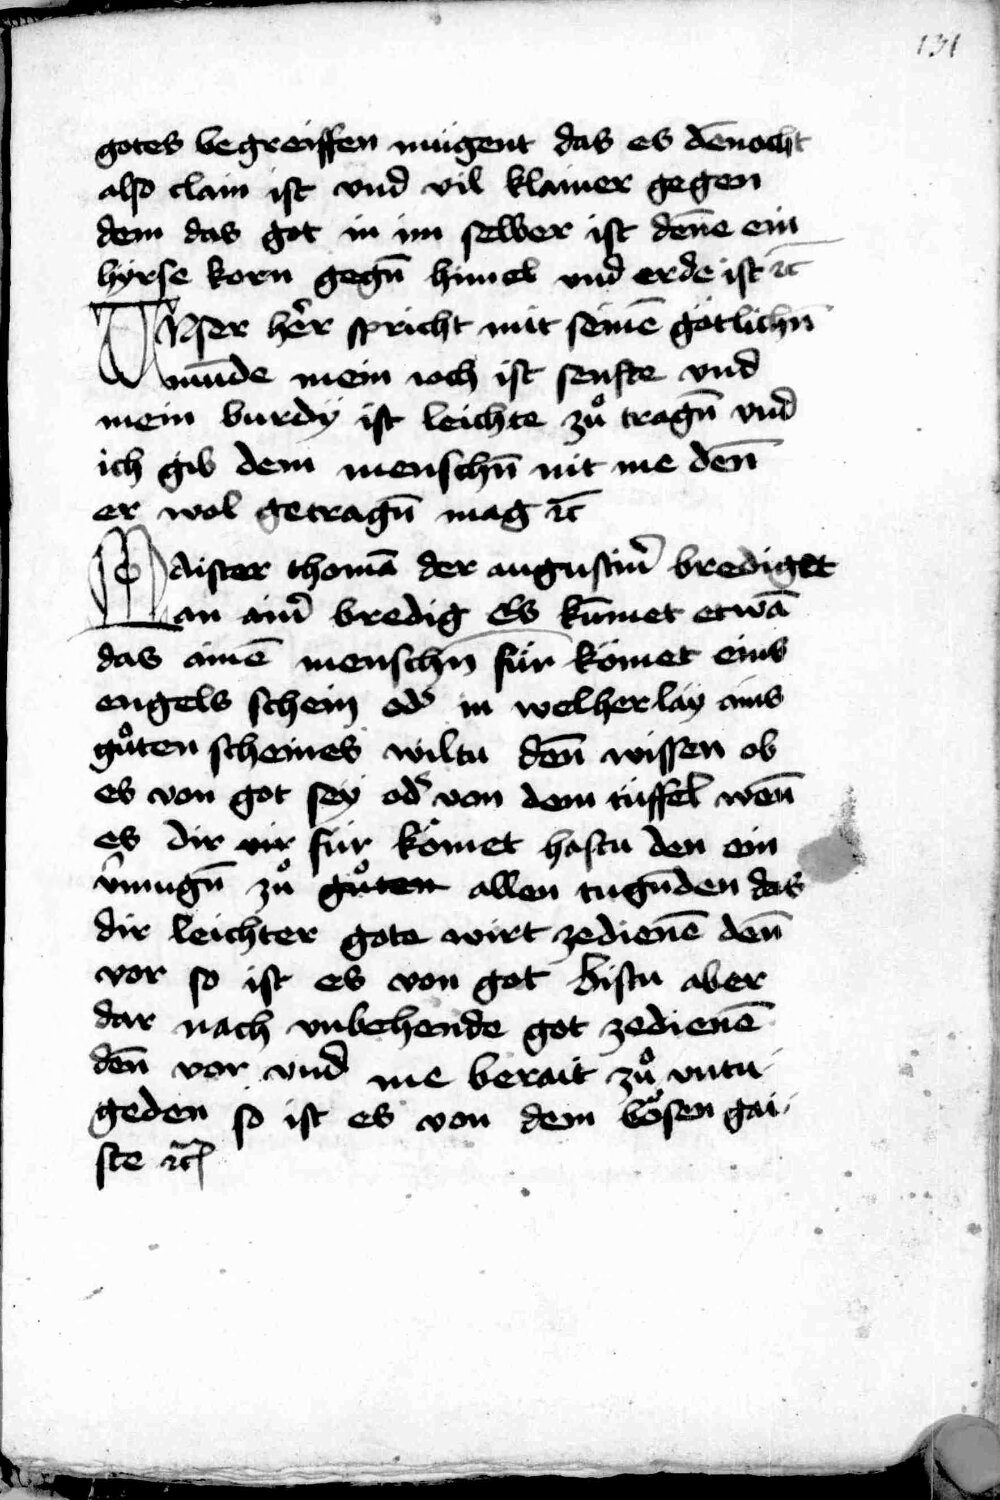 131
gotes begreiffen mügent das es deñocht
also clain ist vnd vil klainer gegen
dem das got in im selber ist deñe ein
hyrse korn gegñ himel vnd erde ist ꝛc̄
VNser heꝛ̉ spricht mit seinē götlichn̄
mūnde mein ioch ist senfte vnd
mein burdÿ ist leichte zů tragn̄ vnd
ich gib dem menschn̄ nit me den̄
er wol getragn̄ mag ꝛc̄
MAister thomā der augustin̉ brediget
an ain̉ bredig Es kūmet etwā
das ainē menschn̄ für kömet eins
engels schein od̉ in welherlay ains
gůten scheines wiltu den̄ wissen ob
es von got sey od̉ von dem tüffel wen̄
es dir vir für kömet hastu den ein
v̉mugn̄ zů gůten allen tugn̄den das
dir leichter gote wirt zedienē den̄
vor so ist es von got Bistu aber
dar nach vnbehende got zedienē
den̄ vor vnd me berait zů vntu-
geden so ist es von dem bösen gai-
ste ꝛc̄